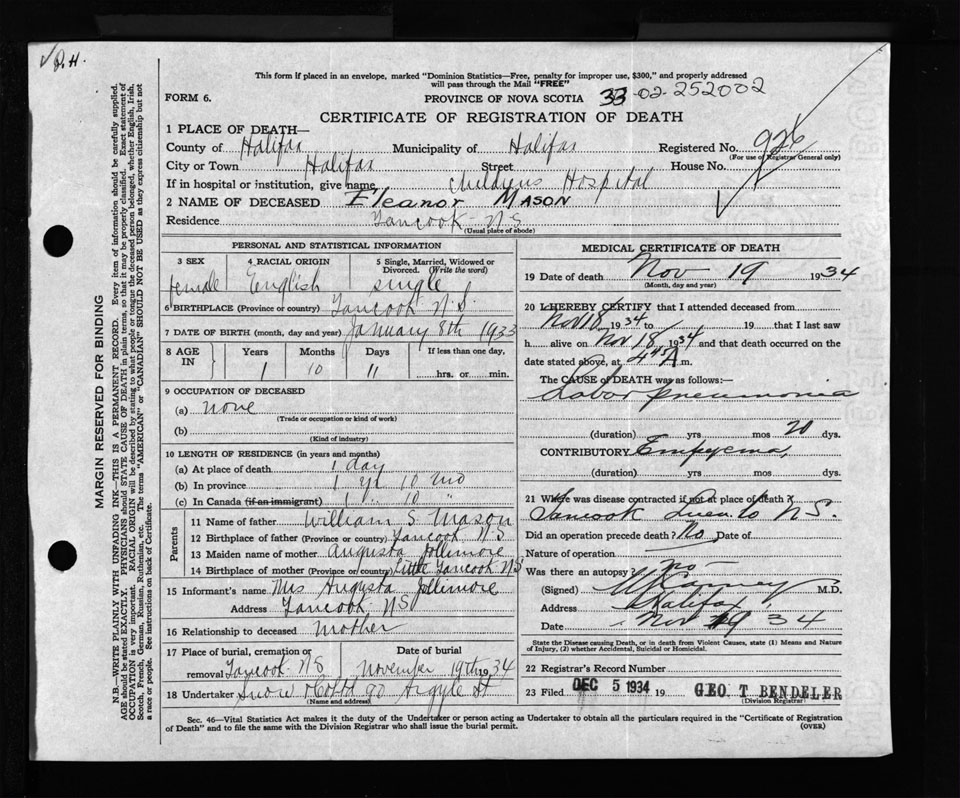 √ P.H.
This form if placed in an envelope, marked "Dominion Statistics—Free, penalty for improper use, $300," and properly addressed
will pass through the Mail "FREE"
FORM 6.
PROVINCE OF NOVA SCOTIA 33-02-252002
CERTIFICATE OF REGISTRATION OF DEATH
1 PLACE OF DEATH—
County of Halifax Municipality of Halifax Registered No. 926
(For use of Registrar General only)
City or Town Halifax Street House No.
If in hospital or institution, give name Childrens Hospital
2 NAME OF DECEASED Eleanor MASON
Residence Tancook N.S
(Usual place of abode)
PERSONAL AND STATISTICAL INFORMATION
3 SEX 4 RACIAL ORIGIN 5 Single, Married, Widowed or
Divorced. (Write the word)
female English single
6 BIRTHPLACE (Province or country) Tancook N.S.
7 DATE OF BIRTH (month, day and year) January 8th 1933
8 AGE IN Years Months Days If less than one day,
1 10 11 hrs. or min.
9 OCCUPATION OF DECEASED
(a) none
(Trade or occupation or kind of work)
(b)
(Kind of industry)
10 LENGTH OF RESIDENCE (in years and months)
(a) At place of death 1 day
(b) In province 1 yr 10 mo
(c) In Canada (if an immigrant) 1 " 10 "
Parents
11 Name of father William S. Mason
12 Birthplace of father (Province or country) Tancook N.S
13 Maiden name of mother Augusta Jollimore
14 Birthplace of mother (Province or country) Little Tancook N.S
15 Informant's name Mrs Augusta Jollimore
Address Tancook N.S
16 Relationship to deceased mother
17 Place of burial, cremation or removal Date of burial
Tancook N.S November 19th 1934
18 Undertaker Snow & Co Ltd 90 Argyle St
(Name and address)
MEDICAL CERTIFICATE OF DEATH
19 Date of death Nov 19 1934
(Month, day and year)
20 I HEREBY CERTIFY that I attended deceased from
Nov 18 1934 to 19 that I last saw
h alive on Nov 18 1934 and that death occurred on the
date stated above, at 4.45 A m.
The CAUSE OF DEATH was as follows:—
Lobar pneumonia
(duration) yrs mos 20 dys.
CONTRIBUTORY Empyema,
(duration) yrs mos dys.
21 Where was disease contracted if not at place of death?
Tancook Luen. Co N.S.
Did an operation precede death? No Date of
Nature of operation
Was there an autopsy? no
(Signed) M.D.
Address Halifax
Date Nov 19 34
State the Disease causing Death, or in death from Violent Causes, state (1) Means and Nature
of Injury, (2) whether Accidental, Suicidal or Homicidal.
22 Registrar's Record Number
23 Filed DEC 5 1934 19 GEO. T BENDELER
(Division Registrar)
Sec. 46—Vital Statistics Act makes it the duty of the Undertaker or person acting as Undertaker to obtain all the particulars required in the "Certificate of Registration
of Death" and to file the same with the Division Registrar who shall issue the burial permit.
(OVER)
MARGIN RESERVED FOR BINDING
N.B.—WRITE PLAINLY WITH UNFADING INK—THIS IS A PERMANENT RECORD. Every item of information should be carefully supplied.
AGE should be stated EXACTLY. PHYSICIANS should STATE CAUSE OF DEATH in plain terms, so that it may be properly classified. Exact statement of
OCCUPATION is very important. RACIAL ORIGIN will be described by stating to what people or tongue the deceased person belonged, whether English, Irish,
Scotch, French, German, Russian, Ruthenian, etc. The terms "AMERICAN" or "CANADIAN" SHOULD NOT BE USED as they express citizenship but not
a race or people. See instructions on back of Certificate.